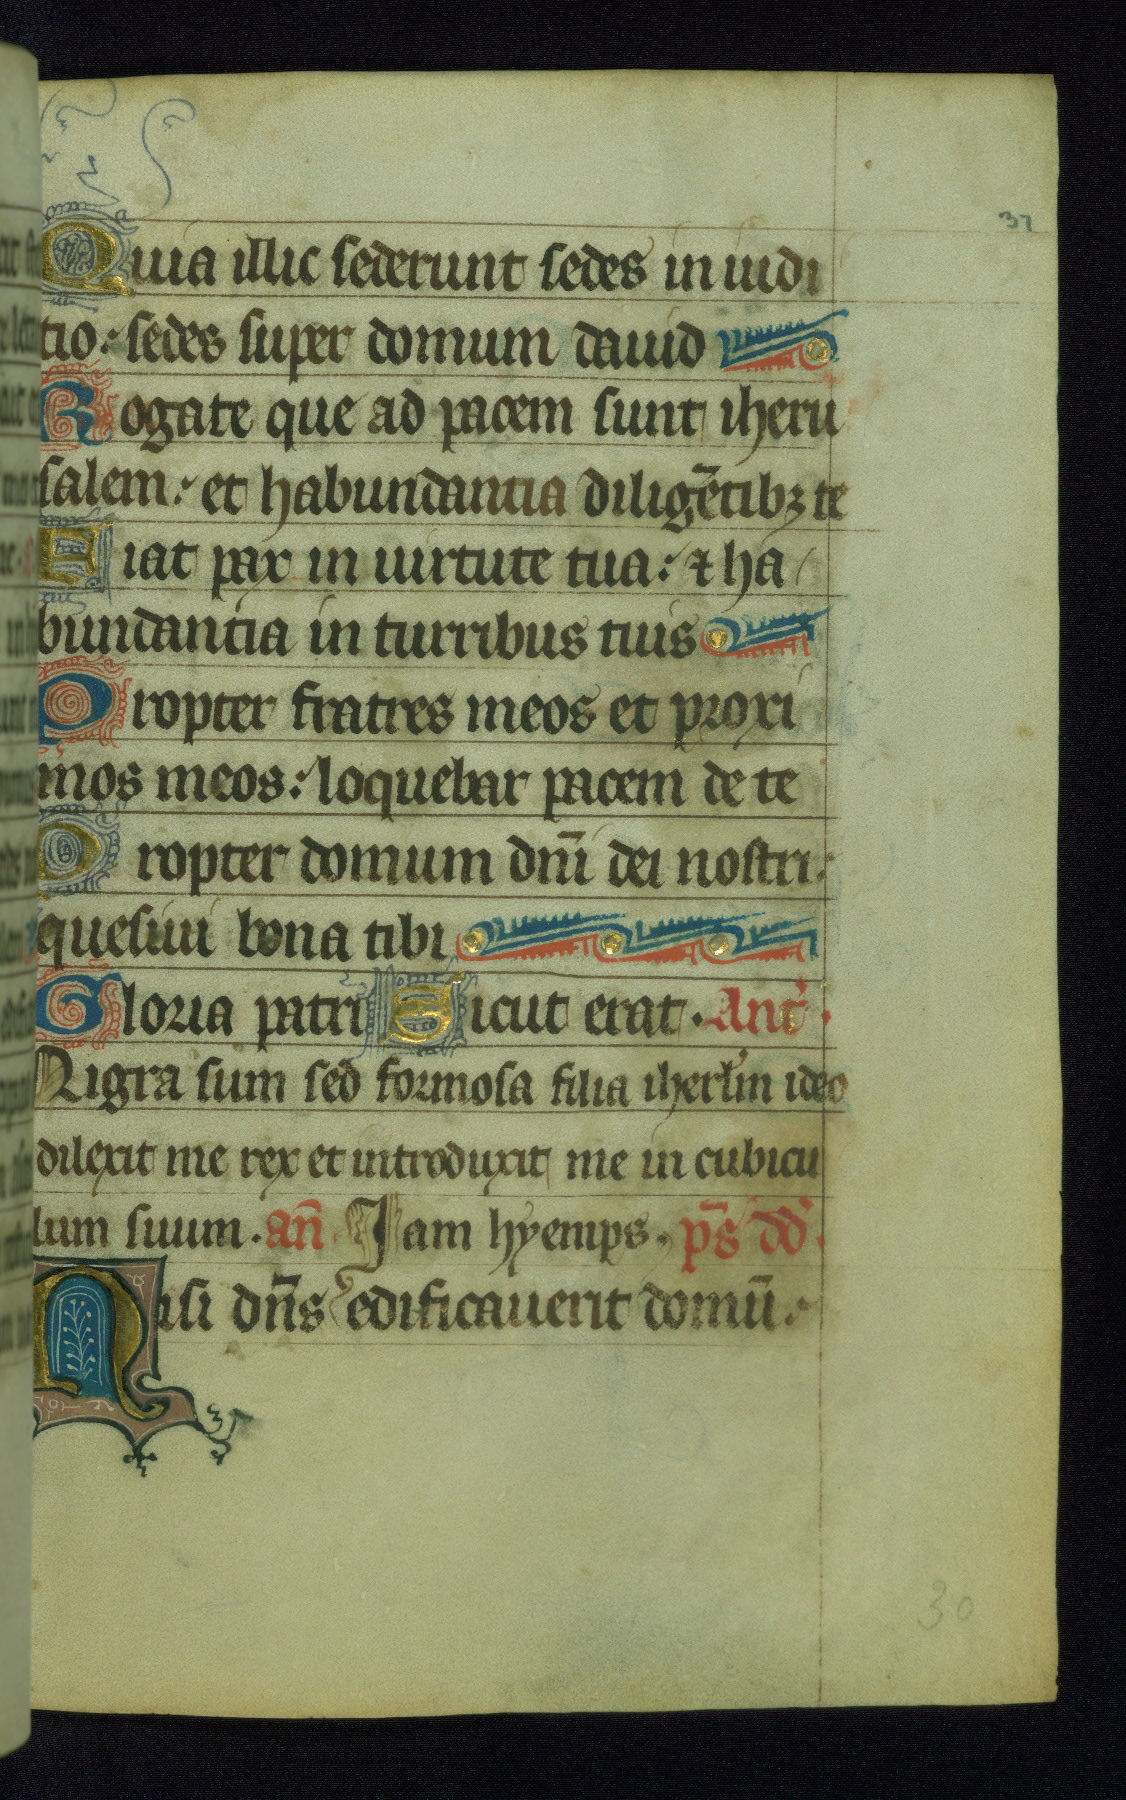 37
Quia illic sederunt sedes in iudi
tio: sedes super domum dauid
Rogate que ad pacem sunt iheru
salem: et habundantia diligētibꝫ te
Fiat pax in uirtute tua: ⁊ ha
bundantia in turribus tuis
Propter fratres meos et proxi
mos meos: loquebar pacem de te
Propter domum dnī dei nostri:
quesiui bona tibi
Gloria patri Sicut erat. Ant.
Nigra sum sed formosa filia iherlm ideo
dilexit me rex et introduxit me in cubicu
lum suum. an̄. Iam hyemps. ps̄ dd.
Nisi dn̄s edificauerit domū:
30